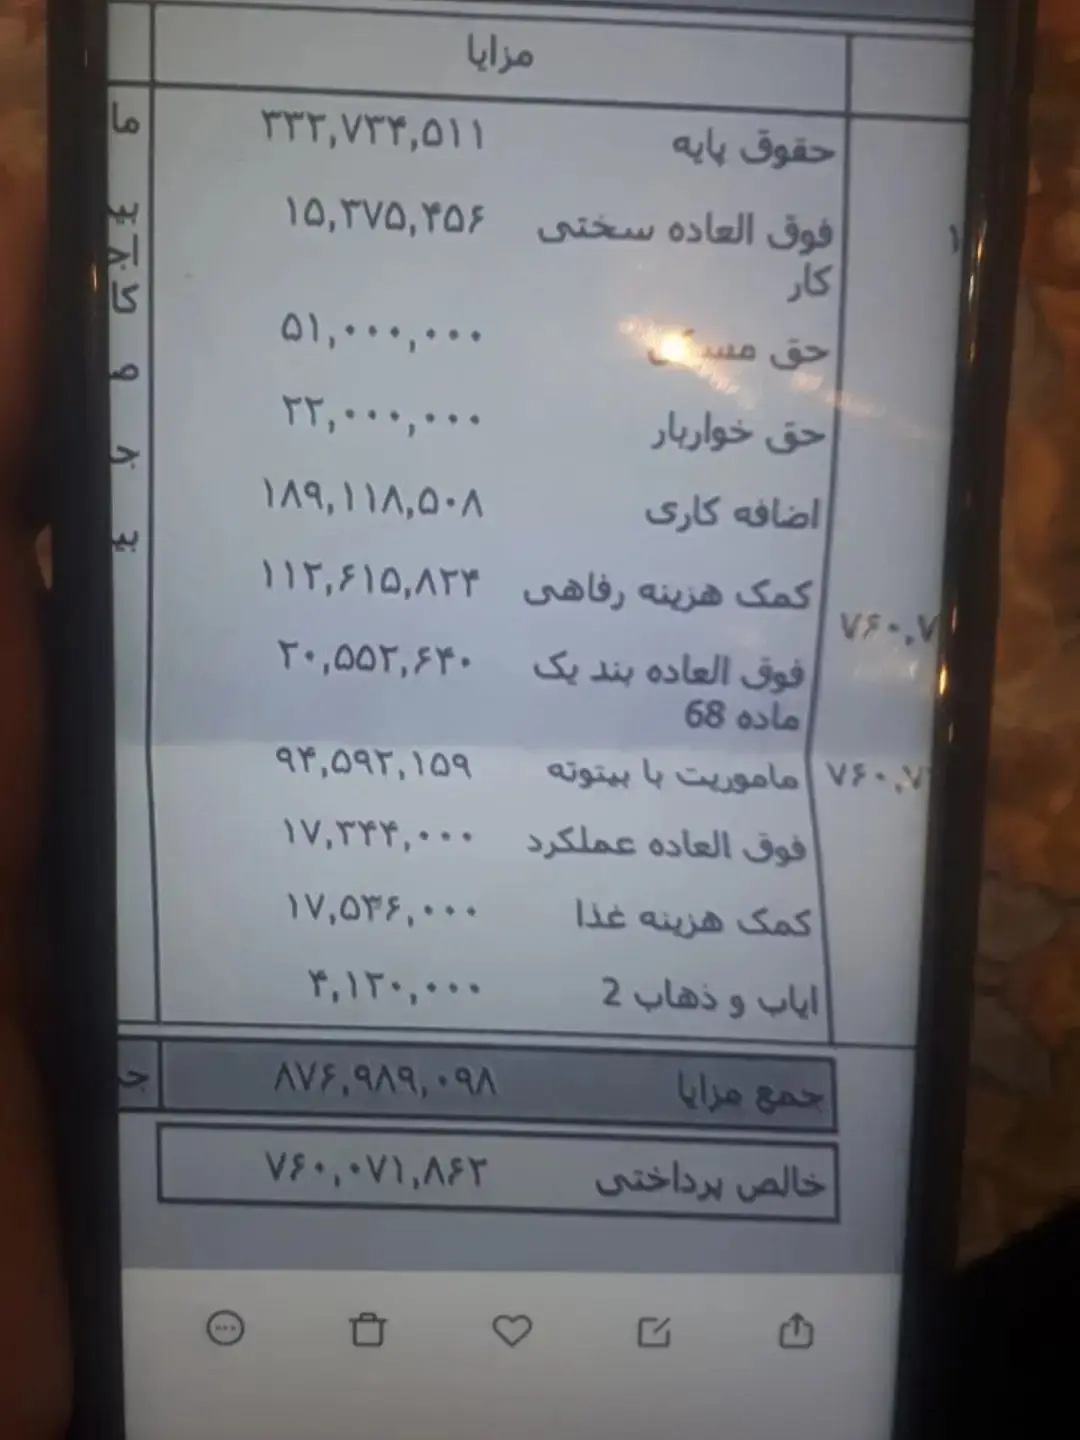 مزایا
حقوق پایه ۳۳۲,۷۳۴,۵۱۱
فوق العاده سختی ۱۵,۳۷۵,۴۵۶
کار
حق مسکن ۵۱,۰۰۰,۰۰۰
حق خواربار ۲۲,۰۰۰,۰۰۰
اضافه کاری ۱۸۹,۱۱۸,۵۰۸
کمک هزینه رفاهی ۱۱۲,۶۱۵,۸۲۴
فوق العاده بند یک ۲۰,۵۵۲,۶۴۰
ماده 68
ماموریت با بیتوته ۹۴,۵۹۲,۱۵۹
فوق العاده عملکرد ۱۷,۳۴۴,۰۰۰
کمک هزینه غذا ۱۷,۵۳۶,۰۰۰
ایاب و ذهاب 2 ۴,۱۲۰,۰۰۰
جمع مزایا ۸۷۶,۹۸۹,۰۹۸
خالص پرداختی ۷۶۰,۰۷۱,۸۶۲